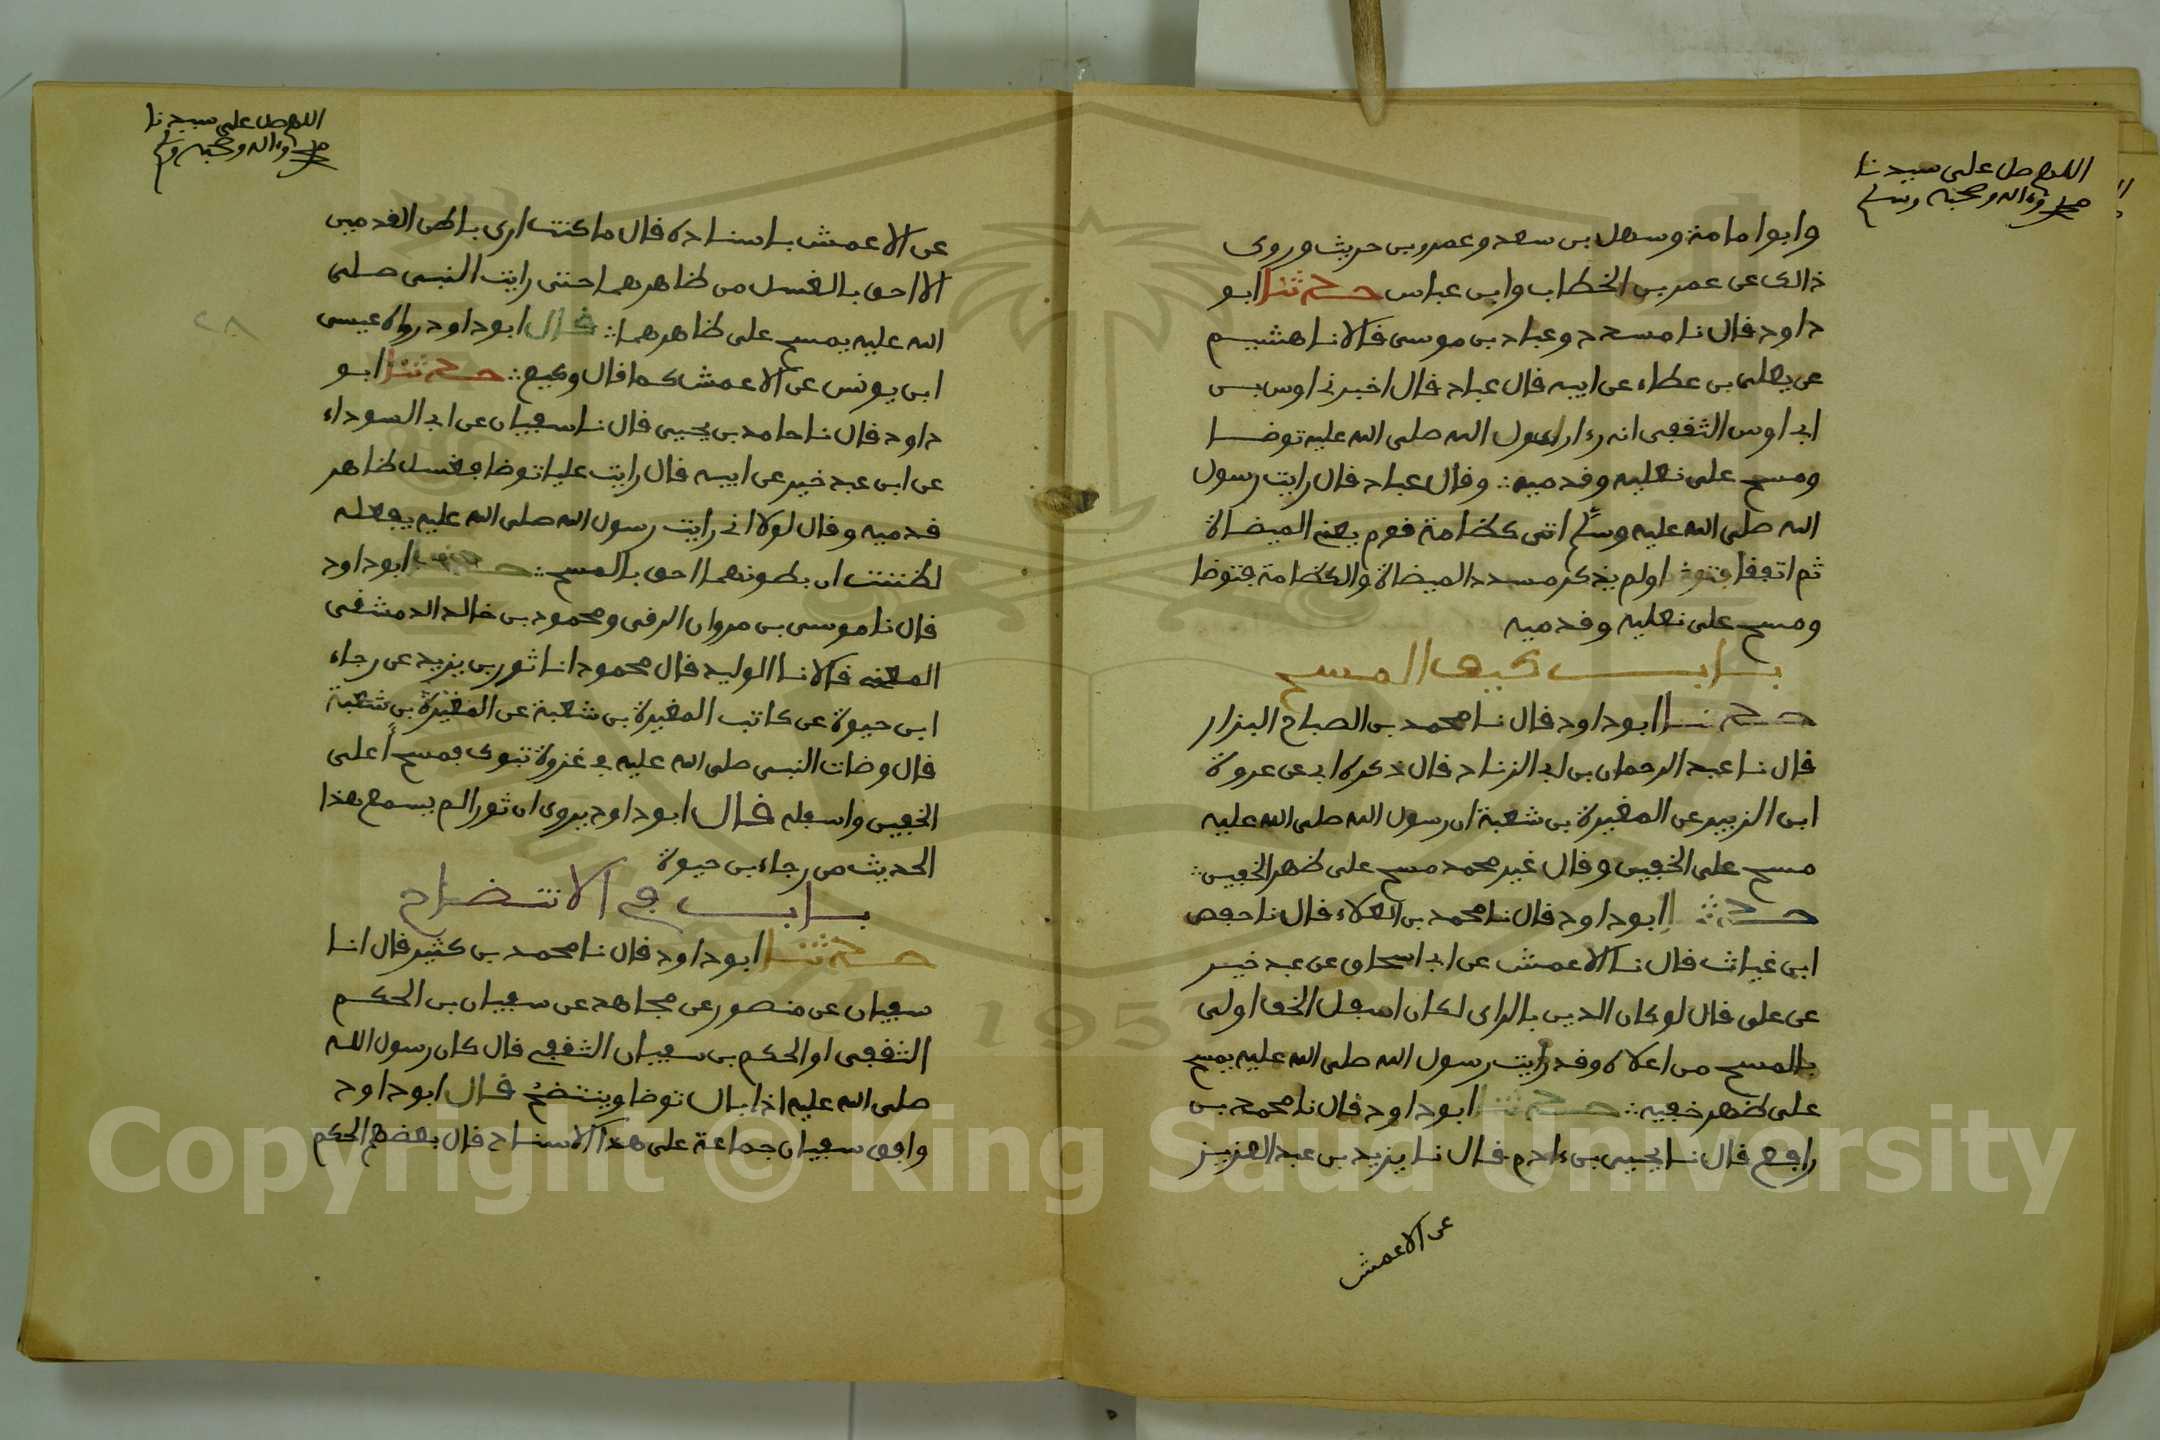 اللهم صل على سيدنا
محمد وءاله وصحبه وسلم
وابوا مامة وسهل بن سعد وعمرو بن حريث وروى
ذالك عن عمر بن الخطاب وابن عباس حدثنا ابو
داود قال نا مسدد وعباد بن موسى قالا نا هشيم
عن يعلى بن عطاء عن ابيه قال عباد قال اخبرني اوس بن
ابي اوس الثقفي انه رءا رسول الله صلى الله عليه توضا
ومسح على نعليه وقدميه وقال عباد قال رايت رسول
الله صلى الله عليه وسلم اتى كظامة قوم يعني الميضاة
ثم اتفقا فتوضا ولم يذكر مسدد الميضاة والكظامة فتوضا
ومسح على نعليه وقدميه
باب كيف المسح
حدثنا ابو داود قال نا محمد بن الصباح البزار
قال نا عبد الرحمان بن ابي الزناد قال ذكره ابي عن عروة
ابن الزبير عن المغيرة بن شعبة ان رسول الله صلى الله عليه
مسح على الخفين وقال غير محمد مسح على ظهر الخفين
حدثنا ابو داود قال نا محمد بن العلاء قال نا حفص
ابن غياث قال نا الاعمش عن ابي اسحاق عن عبد خير
عن على قال لو كان الدين بالراى لكان اسفل الخف اولى
بالمسح من اعلاه وقد رايت رسول الله صلى الله عليه يمسح
على ظهر خفيه حدثنا ابو داود قال نا محمد بن
رافع قال نا يحيى بن ءادم قال نا يزيد بن عبد العزيز
عن الاعمش
اللهم صل على سيدنا
محمد وءاله وصحبه وسلم
عن الاعمش باسناده قال ما كنت ارى باطن القدمين
الا احق بالغسل من ظاهرهما حتى رايت النبي صلى
الله عليه يمسح على ظاهرهما قال ابو داود رواه عيسى
ابن يونس عن الاعمش كما قال وكيع حدثنا ابو
داود قال نا حامد بن يحيى قال نا سفيان عن ابي السوداء
عن ابن عبد خير عن ابيه قال رايت عليا توضا فغسل ظاهر
قدميه وقال لولا اني رايت رسول الله صلى الله عليه يفعله
لظننت ان بطونهما احق بالمسح حدثنا ابو داود
قال نا موسى بن مروان الرقى ومحمود بن خالد الدمشقى
المعنى قالا نا الوليد قال محمود انا ثور بن يزيد عن رجاء
ابن حيوة عن كاتب المغيرة بن شعبة عن المغيرة بن شعبة
قال وضات النبي صلى الله عليه في غزوة تبوك فمسح اعلى
الخفين واسفله قال ابو داود يروى ان ثورا لم يسمع هذا
الحديث من رجاء بن حيوة
باب في الانتضاح
حدثنا ابو داود قال نا محمد بن كثير قال انا
سفيان عن منصور عن مجاهد عن سفيان بن الحكم
الثقفي او الحكم بن سفيان الثقفي قال كان رسول الله
صلى الله عليه اذا بال توضا وينتضح قال ابو داود
وافق سفيان جماعة على هذا الاسناد قال بعضهم الحكم
٢٨
Copyright © King Saud University
1957